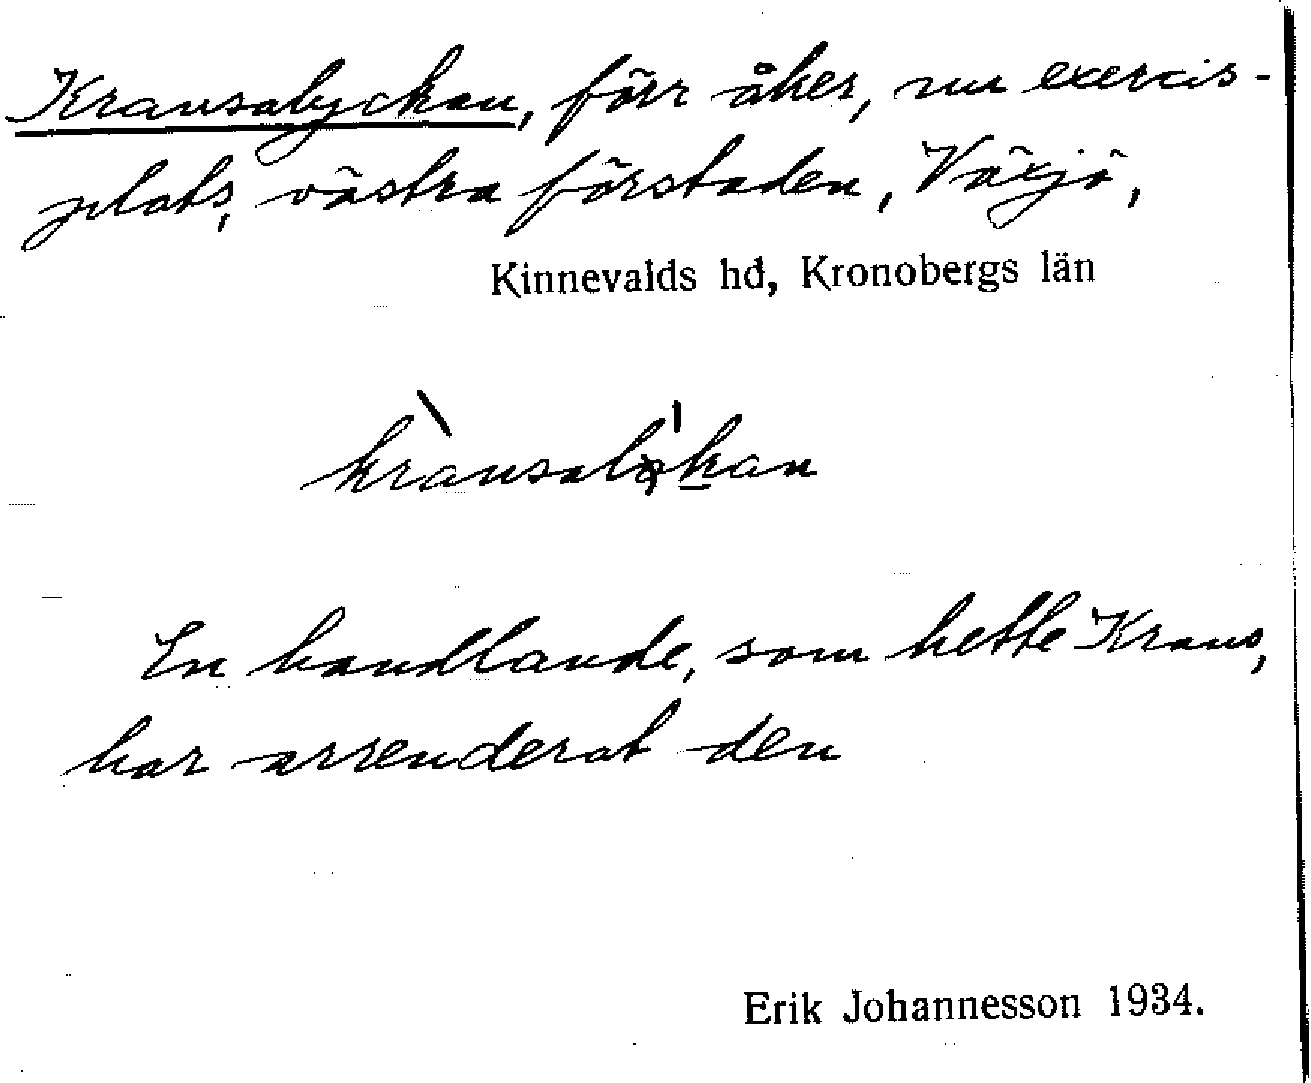 Krausalyckan, förr åker, nu exercis-
plats, västra förstaden, Växjö,
Kinnevalds hd, Kronobergs län
En handlande, som hette Kraus,
har arrenderat den
Erik Johannesson 1934.